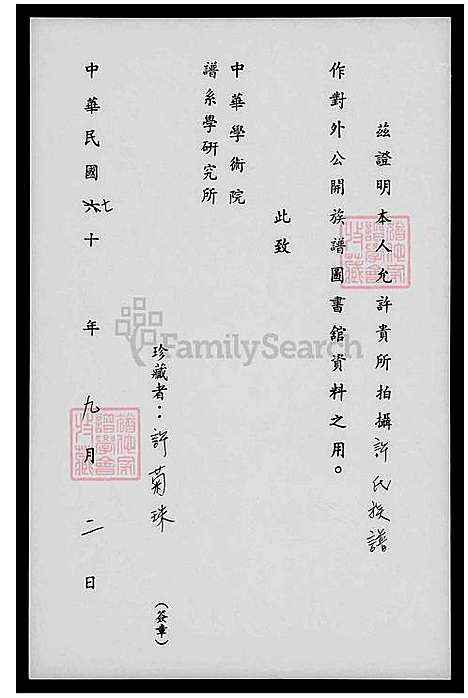 茲證明本人允許貴所拍攝許氏族譜
作對外公開族譜圖書館資料之用。
此致
中華學術院
譜系學研究所
珍藏者：許菊珠（簽章）
中華民國六七十年九月二日
FamilySearch